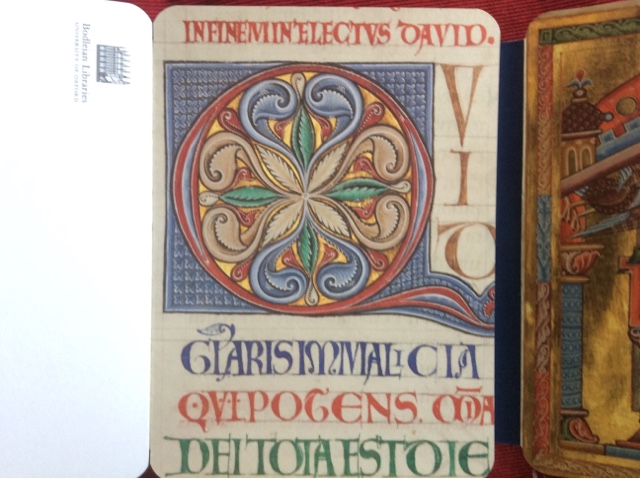 Bodleian Libraries
UNIVERSITY OF OXFORD
INFINEM INTELECTVS DAVID.
Q V
I
D
GLARIS IN MALICIA
QVI POTENS.
DEI TOTA EST DIE